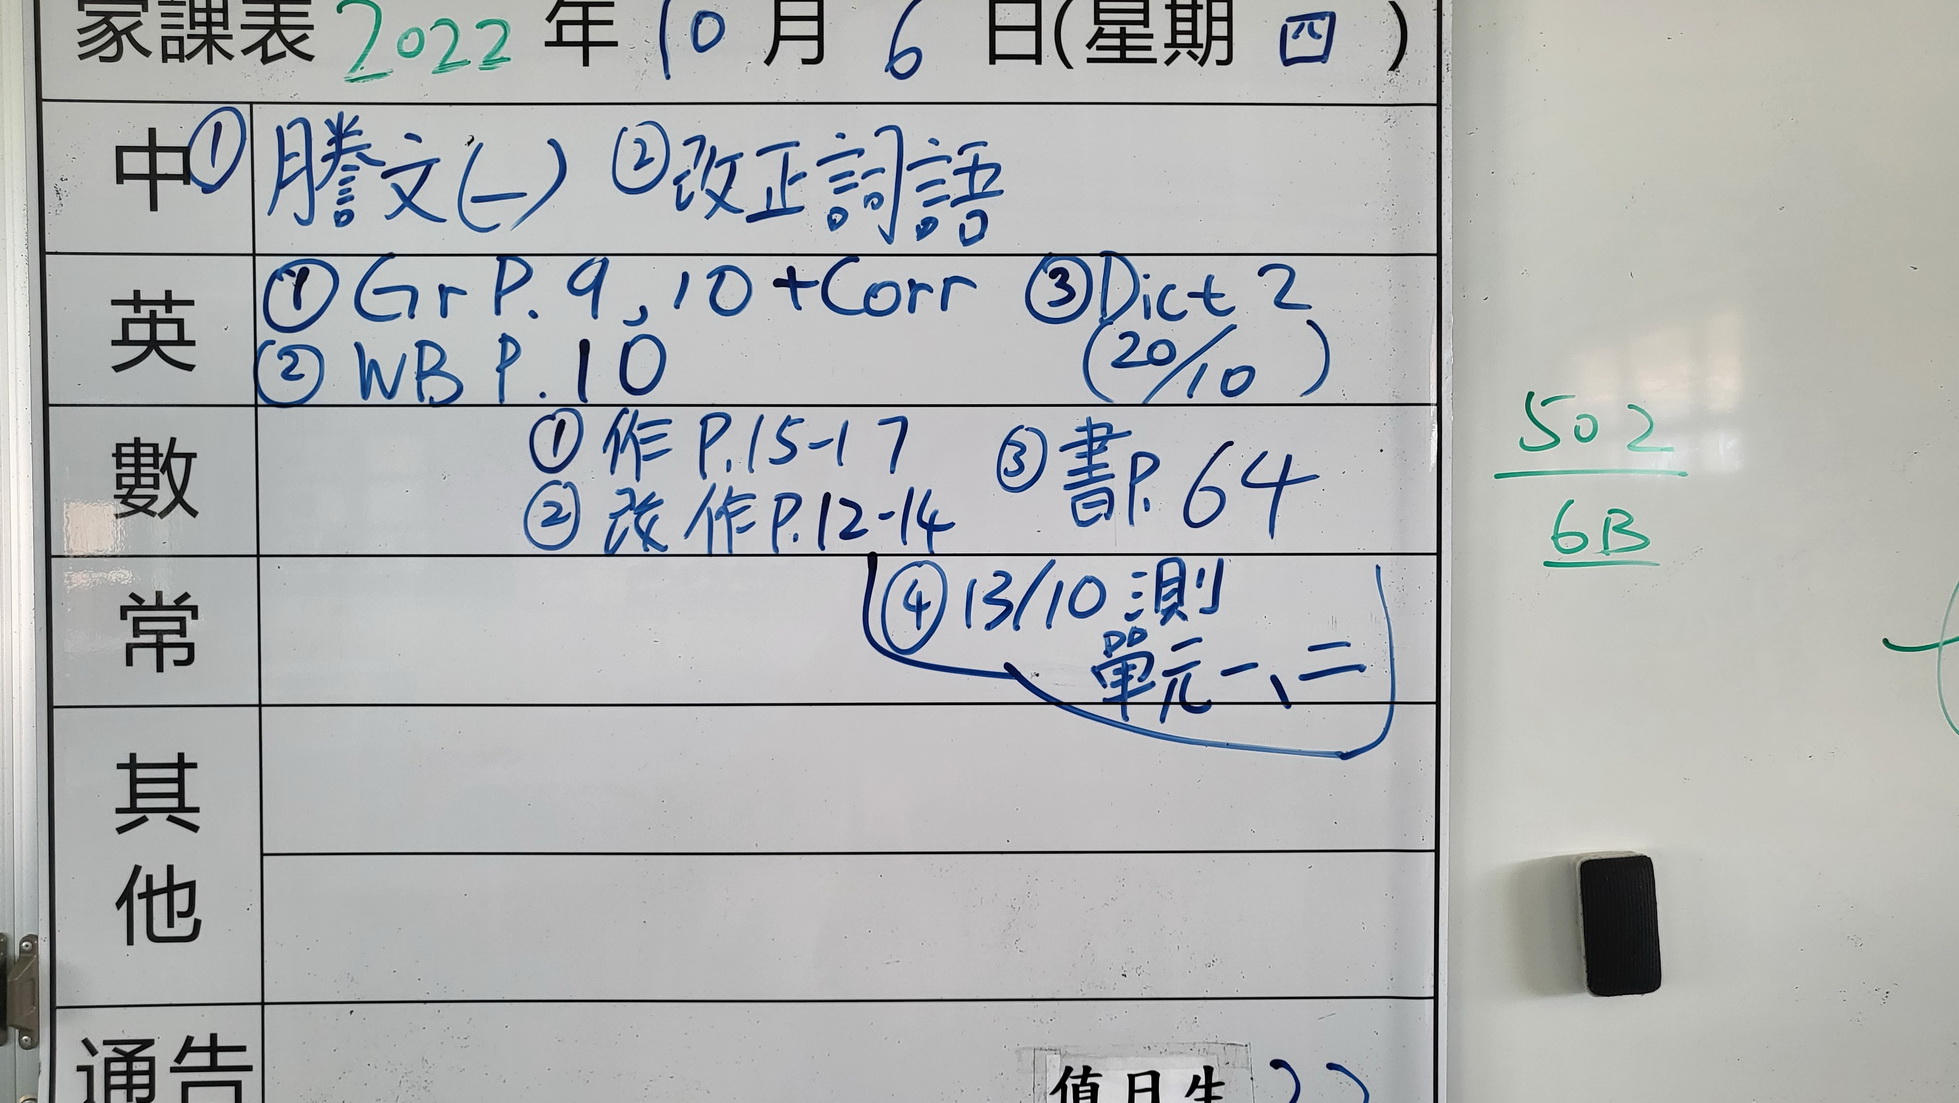 家課表 2022 年 10 月 6 日(星期 四 )
中 ① 謄文(一) ② 改正詞語
英 ① Gr P. 9, 10 + Corr ③ Dict 2
② WB P. 10 (20/10)
數 ① 作 P.15-17 ③ 書P. 64
② 改 作 P.12-14
常 ④ 13/10 測
單元一、二
其他
通告
值日生
502
6B